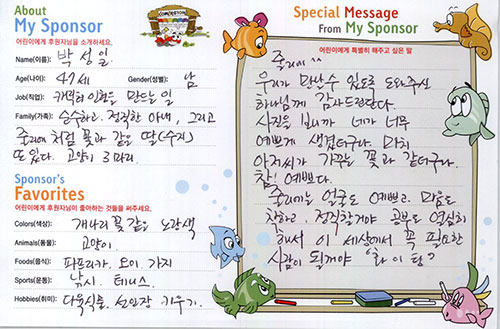 About
My Sponsor
어린이에게 후원자님을 소개하세요.
Name(이름): 박성일
Age(나이): 47세 Gender(성별): 남
Job(직업): 캐릭터 인형을 만드는 일
Family(가족): 순수하고, 정직한 아내, 그리고
줄리에처럼 꽃과 같은 딸(수지)
또 있다. 고양이 3마리.
Sponsor's
Favorites
어린이에게 후원자님이 좋아하는 것들을 써주세요.
Colors(색상): 개나리꽃 같은 노랑색
Animals(동물): 고양이.
Foods(음식): 파프리카. 오이. 가지
Sports(운동): 낚시. 테니스.
Hobbies(취미): 다육식물. 선인장 키우기.
Special Message
From My Sponsor
어린이에게 특별히 해주고 싶은 말
줄리에^^
우리가 만날수 있도록 도와주신
하나님께 감사드린단다.
사진을 보니까 네가 너무
예쁘게 생겼더구나. 마치
아저씨가 가꾸는 꽃과 같더구나.
참! 예쁘다.
줄리에는 얼굴도 예쁘고. 마음도
착하고. 정직할거야 공부도 열심히
해서 이 세상에서 꼭 필요한
사람이 될거야 "화이팅"